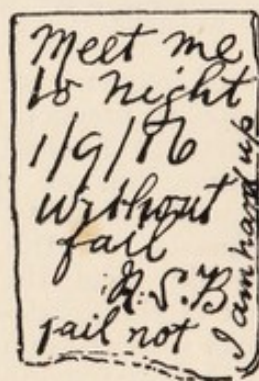 Meet me
to night
1/9/06
without
fail
A.S.B
fail not
I am hard up